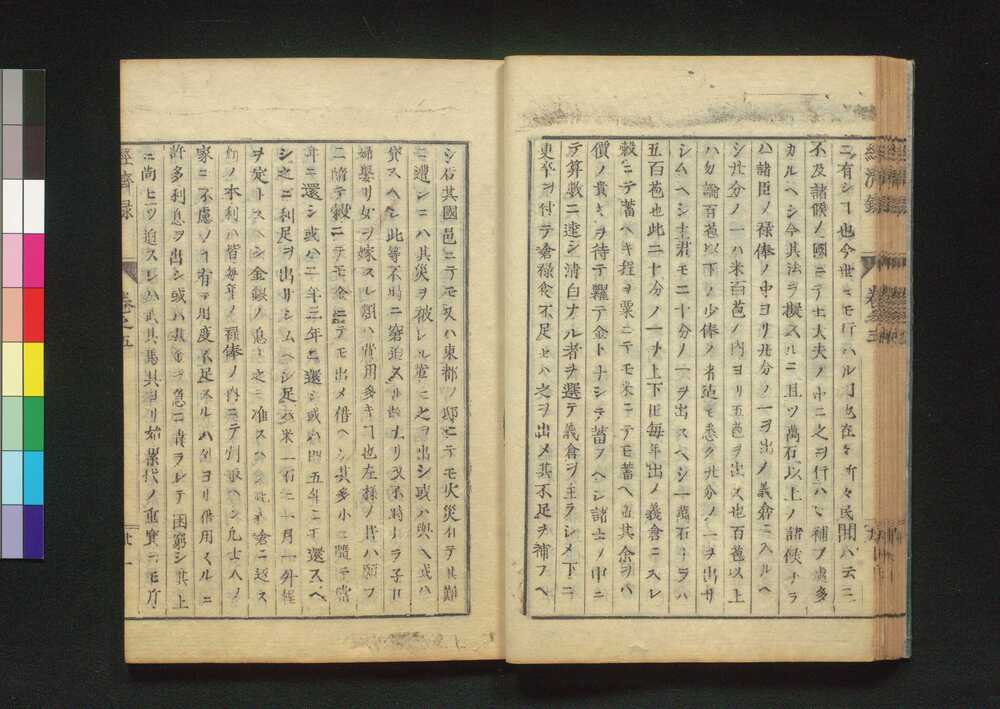 ニ有シヿ也今世ニモ行ハルヿ也在々所々民間ハ云ニ
不及諸侯ノ國ニテ士大夫ノ中ニ之ヲ行ハヽ補フ處多
カルヘシ今其法ヲ擬スルニ且ツ萬石以上ノ諸侯ナラ
ハ諸臣ノ祿俸ノ中ヨリ廿分ノ一ヲ出メ義倉ニ入ルヘ
シ廿分ノ一ハ米百苞ノ内ヨリ五苞ヲ出ス也百苞以上
ハ勿論百苞以下ノ少俸ノ者迄モ悉ク廿分ノ一ヲ出サ
シムヘシ主君モ二十分ノ一ヲ出スヘシ一萬石ナラハ
五百苞也此二十分ノ一ヲ上下ヨリ毎年出メ義倉ニ入レ
穀ニテ蓄ヘキ程ヲ粟ニテモ米ニテモ蓄ヘ置其余ヲハ
價ノ貴キヲ待テ糶テ金トナシテ蓄フヘシ諸士ノ中ニ
テ算數ニ達シ清白ナル者ヲ選テ義倉ヲ主ラシメ下ニ
吏卒ヲ付テ倉祿食不足セハ之ヲ出メ其不足ヲ補フヘ
經濟錄
卷之五
シ若其國邑ニテモ又ハ東都ノ邸ニテモ火災有テ其難
ニ遭シニハ其災ヲ被レル輩ニ之ヲ出シ或ハ與ヘ或ハ
貸スヘシ此等不時ニ窮迫スル
婦娶リ女ヲ嫁スル類ハ費用多キヿ也左樣ノ時ハ願フ
ニ隨テ穀ニテモ金ニテモ出メ借ヘシ其多小ニ隨テ當
年ニ還シ或ハ二年三年ニ還シ或ハ四五年ニモ還スヘ
シ之ニ利足ヲ出サシムヘシ足ハ米一石ニ一月一升程
ヲ定トスヘシ金銀ノ息モ之ニ准スヘシ
ノ本利ハ皆毎年ノ祿俸ノ内ニテ割取ヘシ凡士人ノ
家ニ不慮ノヿ有テ用度不足スル
許多利息ヲ出シ或ハ
ニ尚ヒツ迫スレハ武具馬具ヨリ始累代ノ重寶ニモ